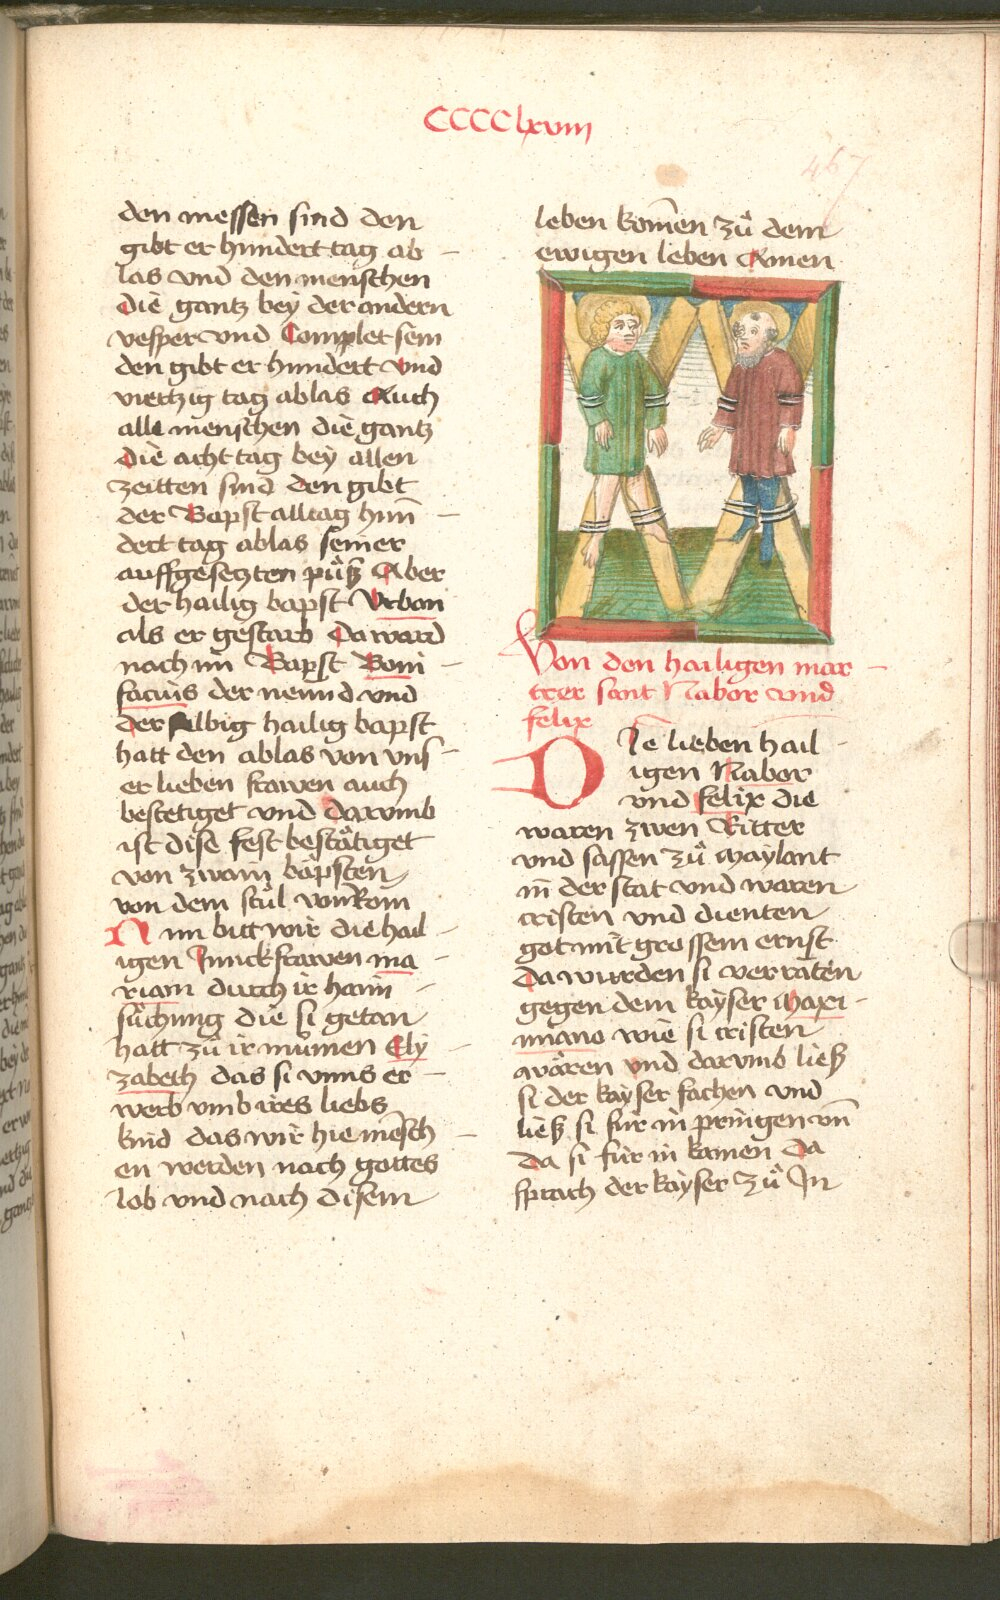 CCCClxviii
467
den messen sind den
gibt er hundert tag ab
las vnd den menschen
die gantz bey der andern
vesper vnd Complet sein
den gibt er hundert vnd
viertzig tag ablas Auch
alle menschen die gantz
die acht tag bey allen
zeitten sind den gibt
der Bapst alltag hun̄
dert tag ablas seiner
auffgesetzten pu͑ß Aber
der hailig bapst Vrban
als er gestarb Da ward
nach im Bapst Boni
facius der neund vnd
der selbig hailig bapst
hatt den ablas von vns
er lieben frawen auch
bestetiget vnd darvmb
ist dise fest bestätiget
von zwain bäpsten
von dem stu͑l von Rom
Nun bitt wir die hail
igen Junckfrawen ma
riam durch ir haim
su͑chung die si getan
hatt zu͑ ir mu͑men Ely
zabeth das si vnns er
werb vmb ires liebs
kind das wir hie mēsch
en werden nach gottes
lob vnd nach disem
leben kom̄en zu͑ dem
ewigen leben Amen
Von den hailigen mar
trer sant Nabor vnd
felix
DIe lieben hail
igen Nabor
vnd felix die
waren zwen Ritter
vnd sassen zu͑ Maylant
in der stat vnd waren
cristen vnd dienten
got mit grossem ernst
Da wurden si verraten
gegen dem kayser Maxi
miano wie si cristen
wären vnd darvmb ließ
si der kayser fachen vnd
ließ si für in pringen vn̄
da si für in komen Da
sprach der kayser zu͑ In